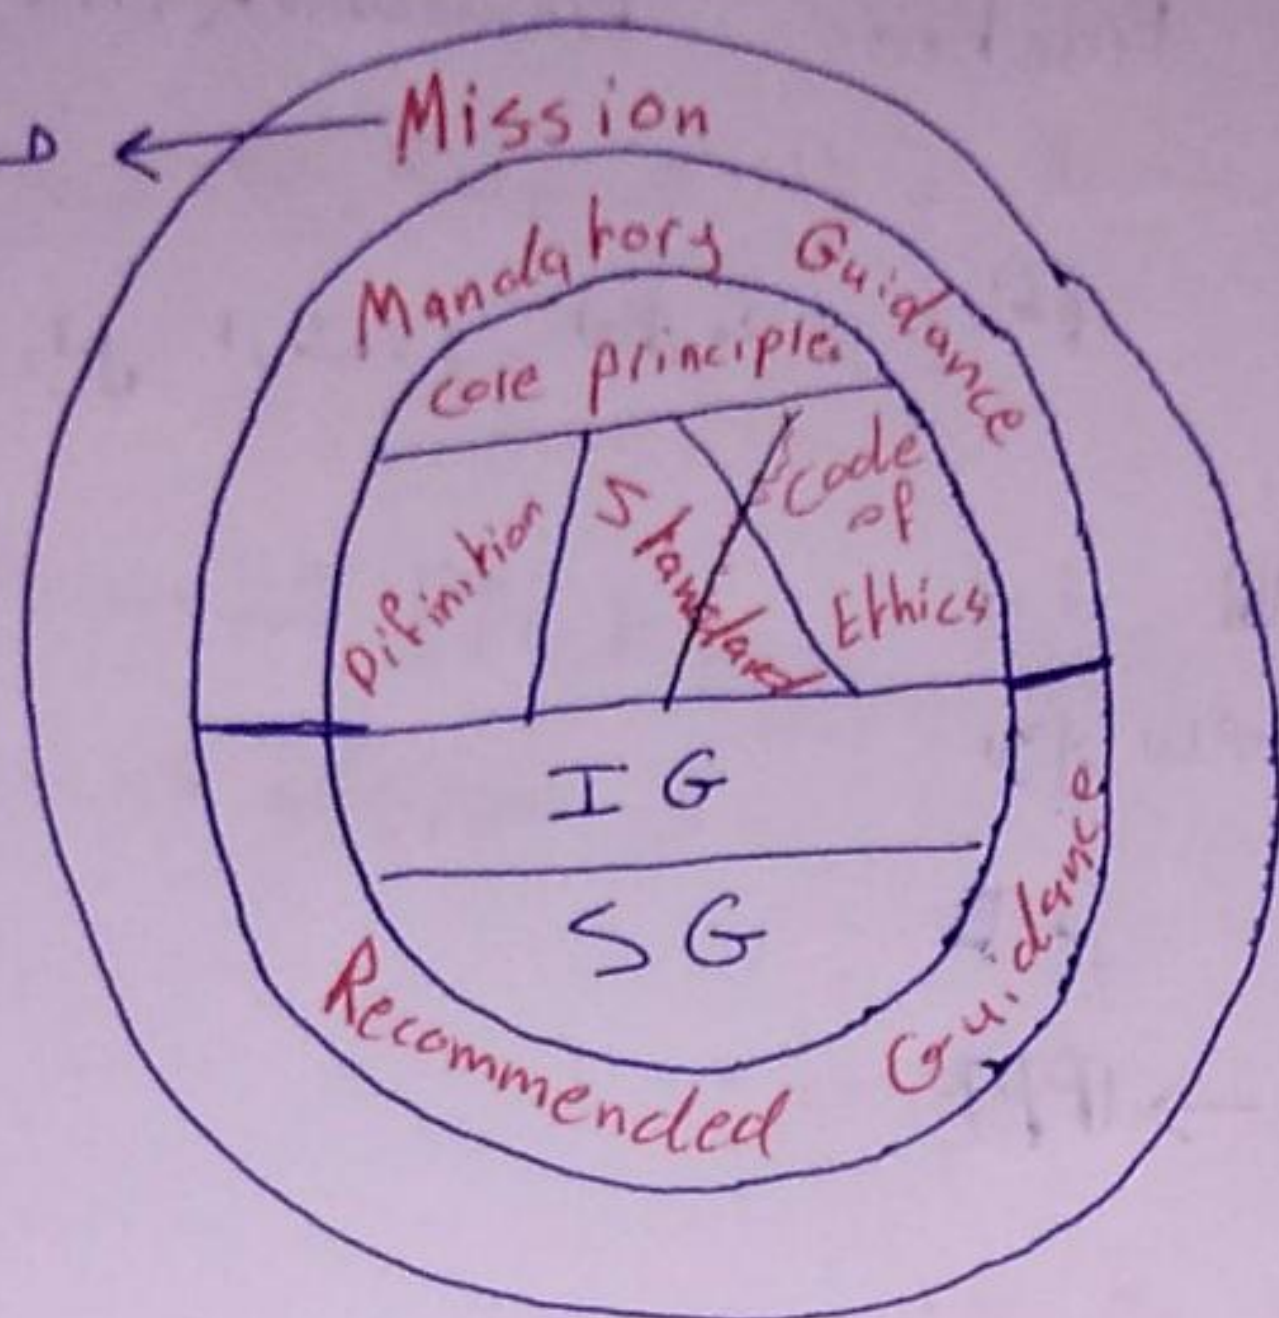 D
Mission
Mandatory Guidance
core principles
Difinition
Standard
Code
of
Ethics
I G
S G
Recommended Guidance